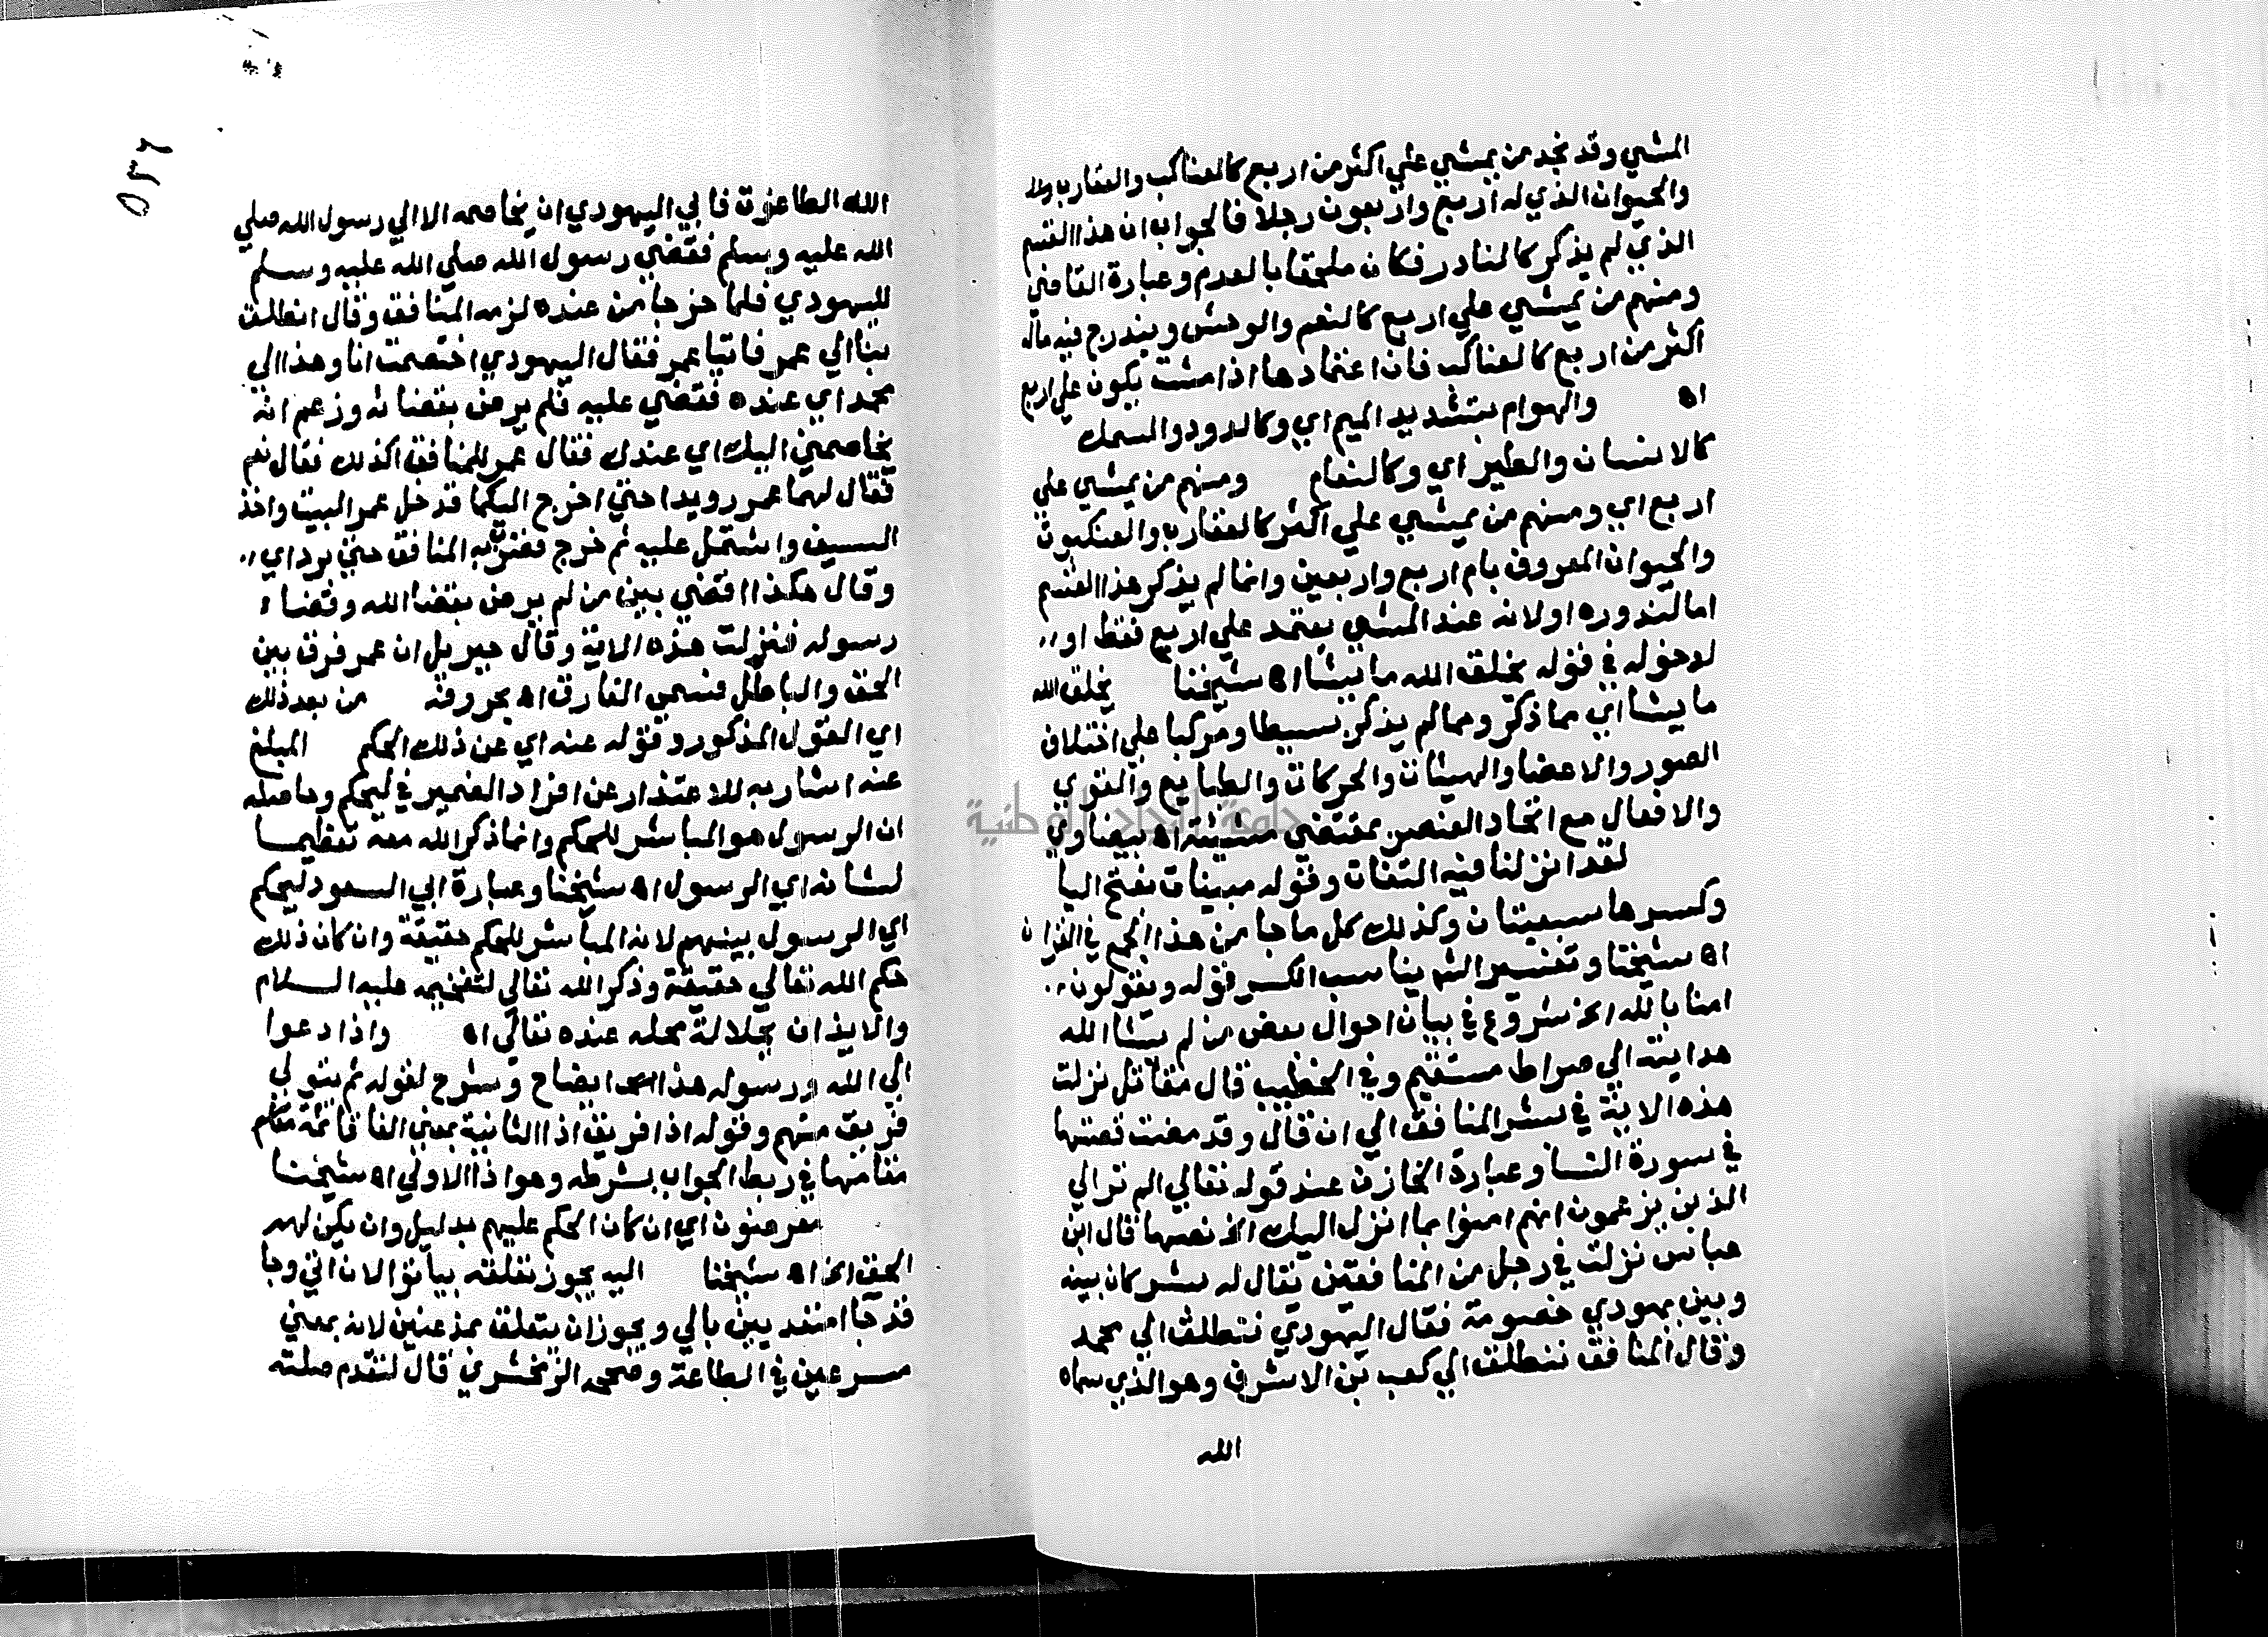 المشي وقد نجد من يمشي علي اكثر من اربع كالعناكب والعقارب
والحيوان الذي له اربع واربعون رجلا فالجواب ان هذا القسم
الذي لم يذكر كالنادر فكان ملحقا بالعدم وعبارة القاضي
ومنهم من يمشي علي اربع كالنعم والوحش ويندرج فيه ماله
اكثر من اربع كالعناكب فان اعتمادها اذا مشت يكون علي اربع
اه والهوام بتشديد الميم اي وكالدود والسمك
كالانسان والطير اي وكالنعام ومنهم من يمشي علي
اربع اي ومنهم من يمشي علي اكثر كالعقارب والعنكبوت
والحيوان المعروف بام اربع واربعين وانما لم يذكر هذا القسم
اما لندوره او لانه عند المشي يعتمد علي اربع فقط او
لدخوله في قوله يخلق الله ما يشا اه شيخنا يخلق الله
ما يشا اي مما ذكر ومما لم يذكر بسيطا ومركبا علي اختلاف
الصور والاعضا والهيئات والحركات والطبايع والقوي
والافعال مع اتحاد العنصر بمقتضي مشيئته اه بيضاوي
جامعة النجاح الوطنية
لقد انزلنا فيه التفات وقوله مبينات بفتح اليا
وكسرها سبعيتان وكذلك كل ما جا من هذا الجمع في القران
اه شيخنا وتفسير الش يناسب الكسر قوله ويقولون
امنا بالله الخ شروع في بيان احوال بعض من لم يشا الله
هدايته الي صراط مستقيم وفي الخطيب قال مقاتل نزلت
هذه الاية في بشر المنافق الي ان قال وقد مضت قصتها
في سورة النسا وعبارة الخازن عند قوله تعالي الم تر الي
الذين يزعمون انهم امنوا بما انزل اليك الخ نصها قال ابن
عباس نزلت في رجل من المنافقين يقال له بشر كان بينه
وبين يهودي خصومة فقال اليهودي ننطلق الي محمد
وقال المنافق ننطلق الي كعب بن الاشرف وهو الذي سماه
الله
٥٣٦
الله الطاغوت فابي اليهودي ان يخاصمه الا الي رسول الله صلي
الله عليه وسلم فقضي رسول الله صلي الله عليه وسلم
لليهودي فلما خرجا من عنده لزمه المنافق وقال انطلق
بنا الي عمر فاتيا عمر فقال اليهودي اختصمت انا وهذا الي
محمد اي عنده فقضي عليه فلم يرض بقضائه وزعم انه
يخاصمني اليك اي عندك فقال عمر للمنافق اكذلك فقال نعم
فقال لهما عمر رويدا حتي اخرج اليكما فدخل عمر البيت واخذ
السيف واشتمل عليه ثم خرج فضرب به المنافق حتي برد اي
وقال هكذا اقضي بين من لم يرض بقضا الله وقضاء
رسوله فنزلت هذه الاية وقال جبريل ان عمر فرق بين
الحق والباطل فسمي الفاروق اه بحروفه من بعد ذلك
اي القول المذكور وقوله عنه اي عن ذلك الحكم المبلغ
عنه اشار به للاعتذار عن افراد الضمير في ليحكم وحاصله
ان الرسول هو المباشر للحكم وانما ذكر الله معه تعظيما
لشانه اي الرسول اه شيخنا وعبارة ابي السعود ليحكم
اي الرسول بينهم لانه المباشر للحكم حقيقة وان كان ذلك
حكم الله تعالي حقيقة وذكر الله تعالي لتفخيمه عليه السلام
والايذان بجلالة محله عنده تعالي اه واذا دعوا
الي الله ورسوله هذا ايضاح وشرح لقوله ثم يتولي
فريق منهم وقوله اذا فريق اذا الثانية بمعني الفا قائمة مقام
مقامها في ربط الجواب بشرطه وهو اذا الاولي اه شيخنا
معرضون اي ان كان الحكم عليهم بدليل وان يكن لهم
الحق الخ اه شيخنا اليه يجوز تعلقه بياتوا لان اتي وجا
قد جا امتعديين بالي ويجوز ان يتعلق بمذعنين لانه بمعني
مسرعين في الطاعة وصححه الزمخشري قال لتقدم صلته